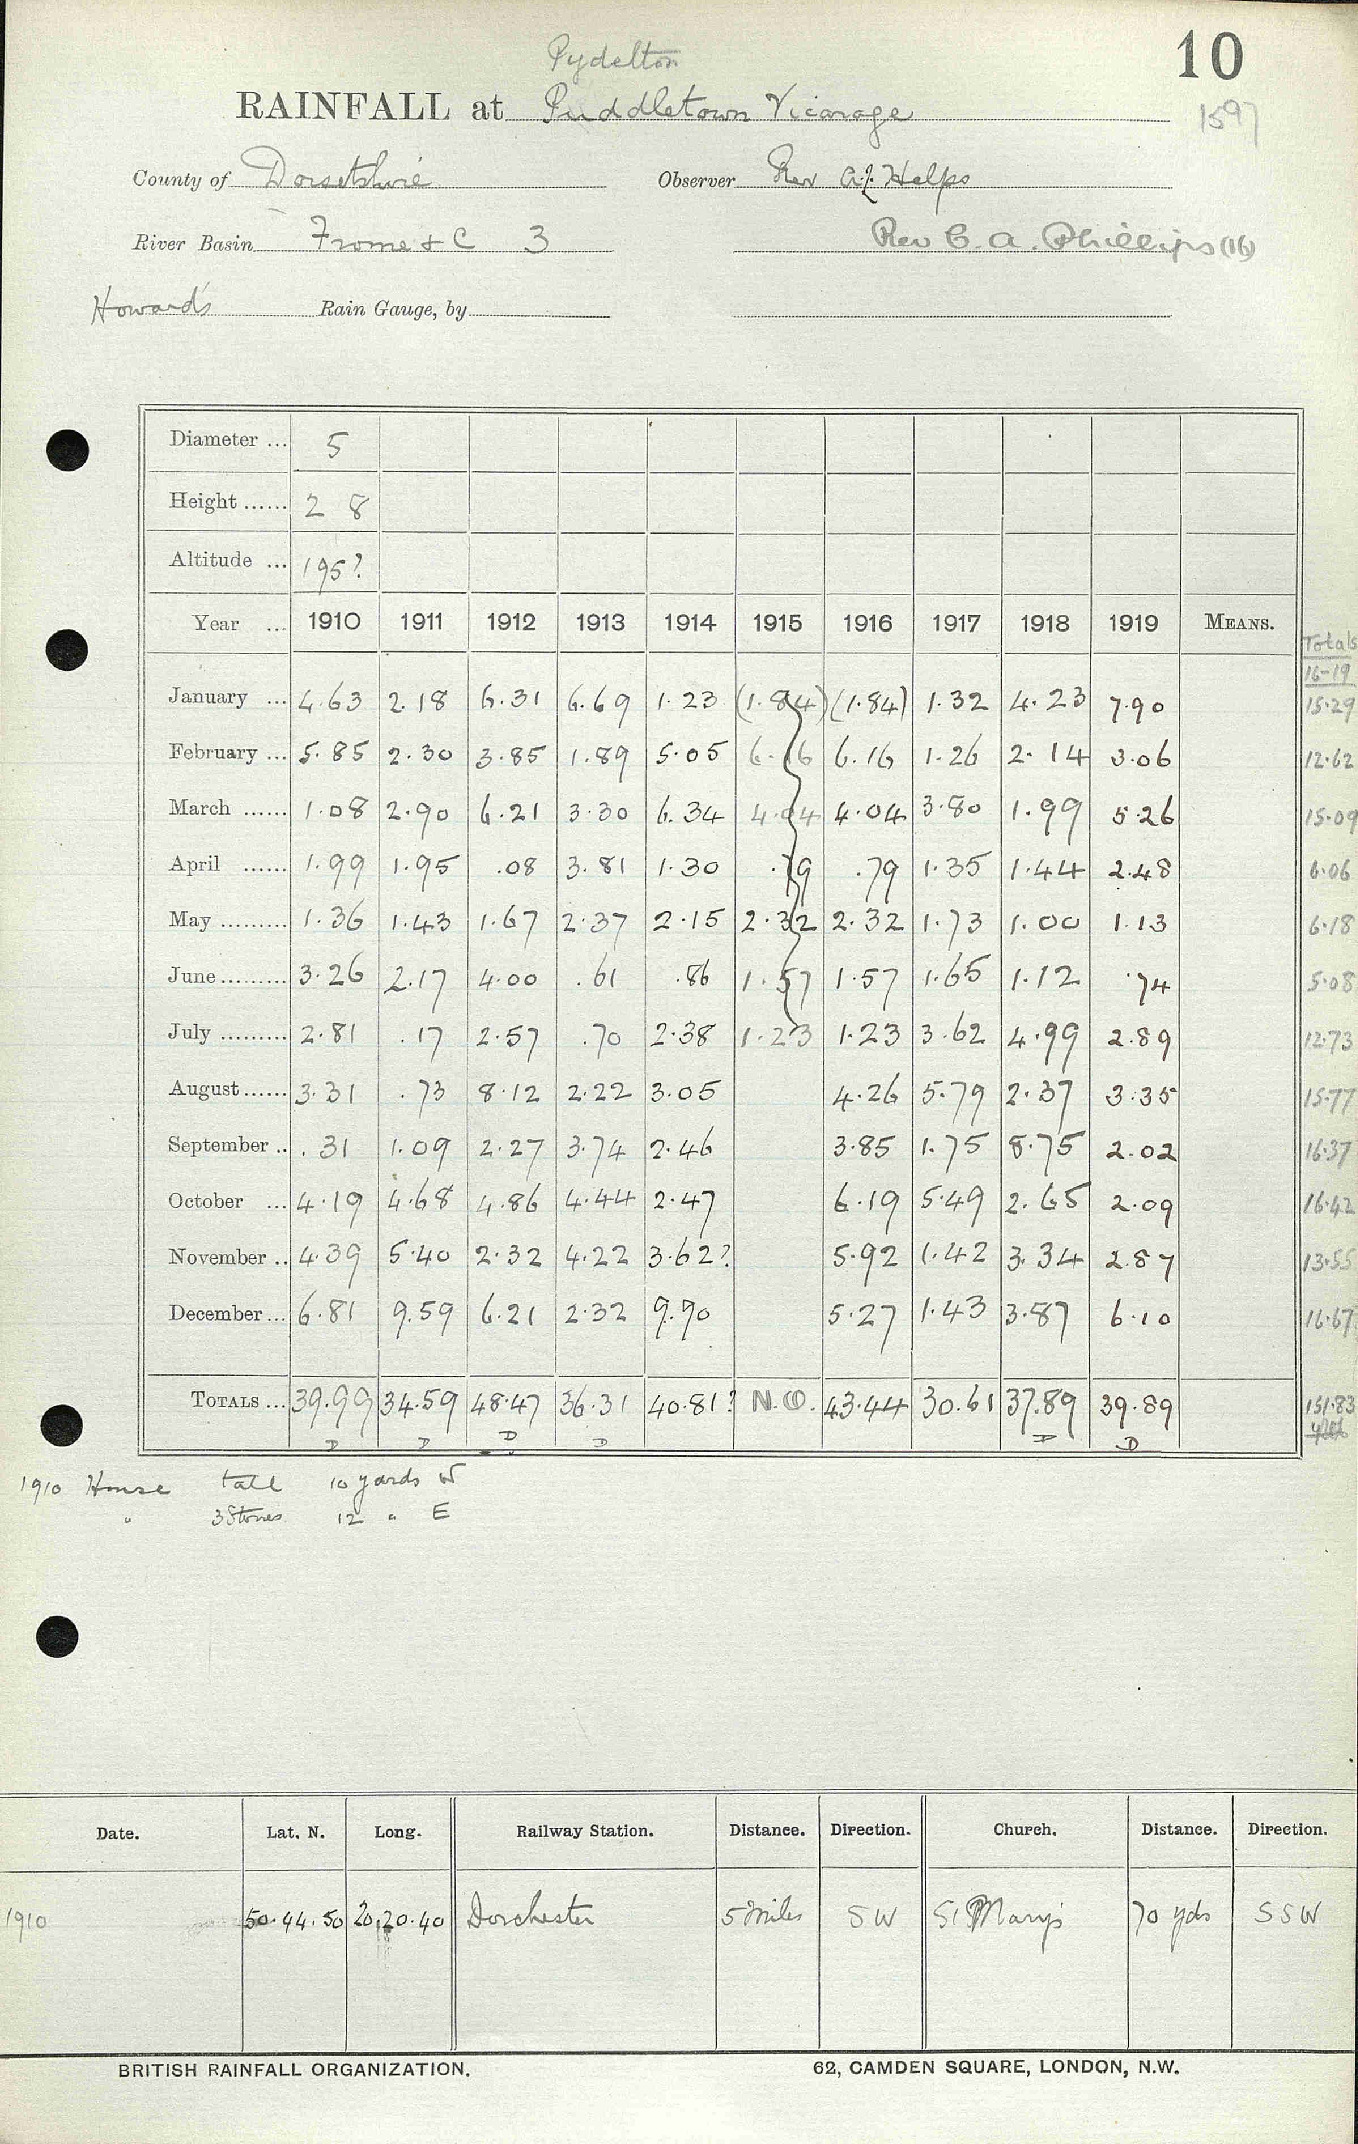 10
Pydelton
RAINFALL at Puddletown Vicarage
1597
County of Dorsetshire Observer Rev A.L. Helps
River Basin Frome & C 3 Rev C. A. Phillips (16)
Howard's Rain Gauge, by
Diameter ... 5
Height ...... 2 8
Altitude ... 195?
Year ... 1910 1911 1912 1913 1914 1915 1916 1917 1918 1919 MEANS. Totals 16-19
January ... 4.63 2.18 6.31 6.69 1.23 (1.84) (1.84) 1.32 4.23 7.90 15.29
February ... 5.85 2.30 3.85 1.89 5.05 6.16 6.16 1.26 2.14 3.06 12.62
March ...... 1.08 2.90 6.21 3.30 6.34 4.04 4.04 3.80 1.99 5.26 15.09
April ...... 1.99 1.95 .08 3.81 1.30 .79 .79 1.35 1.44 2.48 6.06
May ......... 1.36 1.43 1.67 2.37 2.15 2.32 2.32 1.73 1.00 1.13 6.18
June ......... 3.26 2.17 4.00 .61 .86 1.57 1.57 1.65 1.12 .74 5.08
July ......... 2.81 .17 2.57 .70 2.38 1.23 1.23 3.62 4.99 2.89 12.73
August ...... 3.31 .73 8.12 2.22 3.05 4.26 5.79 2.37 3.35 15.77
September .. .31 1.09 2.27 3.74 2.46 3.85 1.75 8.75 2.02 16.37
October ... 4.19 4.68 4.86 4.44 2.47 6.19 5.49 2.65 2.09 16.42
November .. 4.39 5.40 2.32 4.22 3.62? 5.92 1.42 3.34 2.87 13.55
December ... 6.81 9.59 6.21 2.32 9.90 5.27 1.43 3.87 6.10 16.67
TOTALS ... 39.99 34.59 48.47 36.31 40.81? N.O. 43.44 30.61 37.89 39.89 151.83
D D D D D D
1910 House tall 10 yards W
" 3 Stories 12 " E
Date. Lat. N. Long. Railway Station. Distance. Direction. Church. Distance. Direction.
1910 50.44.50 2.20.40 Dorchester 5 Miles SW St Mary's 70 yds SSW
BRITISH RAINFALL ORGANIZATION. 62, CAMDEN SQUARE, LONDON, N.W.